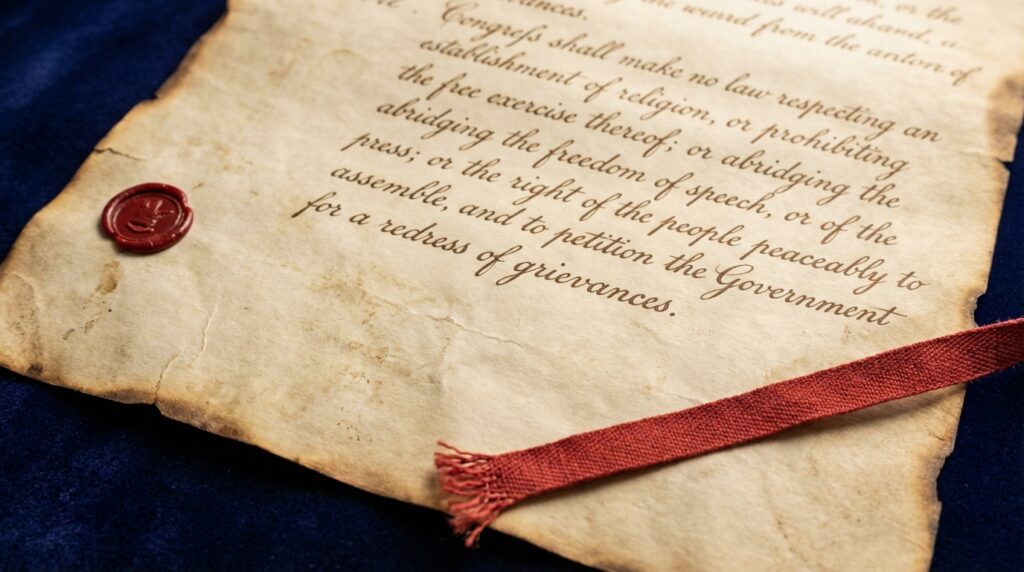 or the
the wward from the anton of
vances.
Congreſs shall make no law respecting an
establishment of religion, or prohibiting
the free exercise thereof; or abridging the
abridging the freedom of speech, or of the
press; or the right of the people peaceably to
assemble, and to petition the Government
for a redress of grievances.